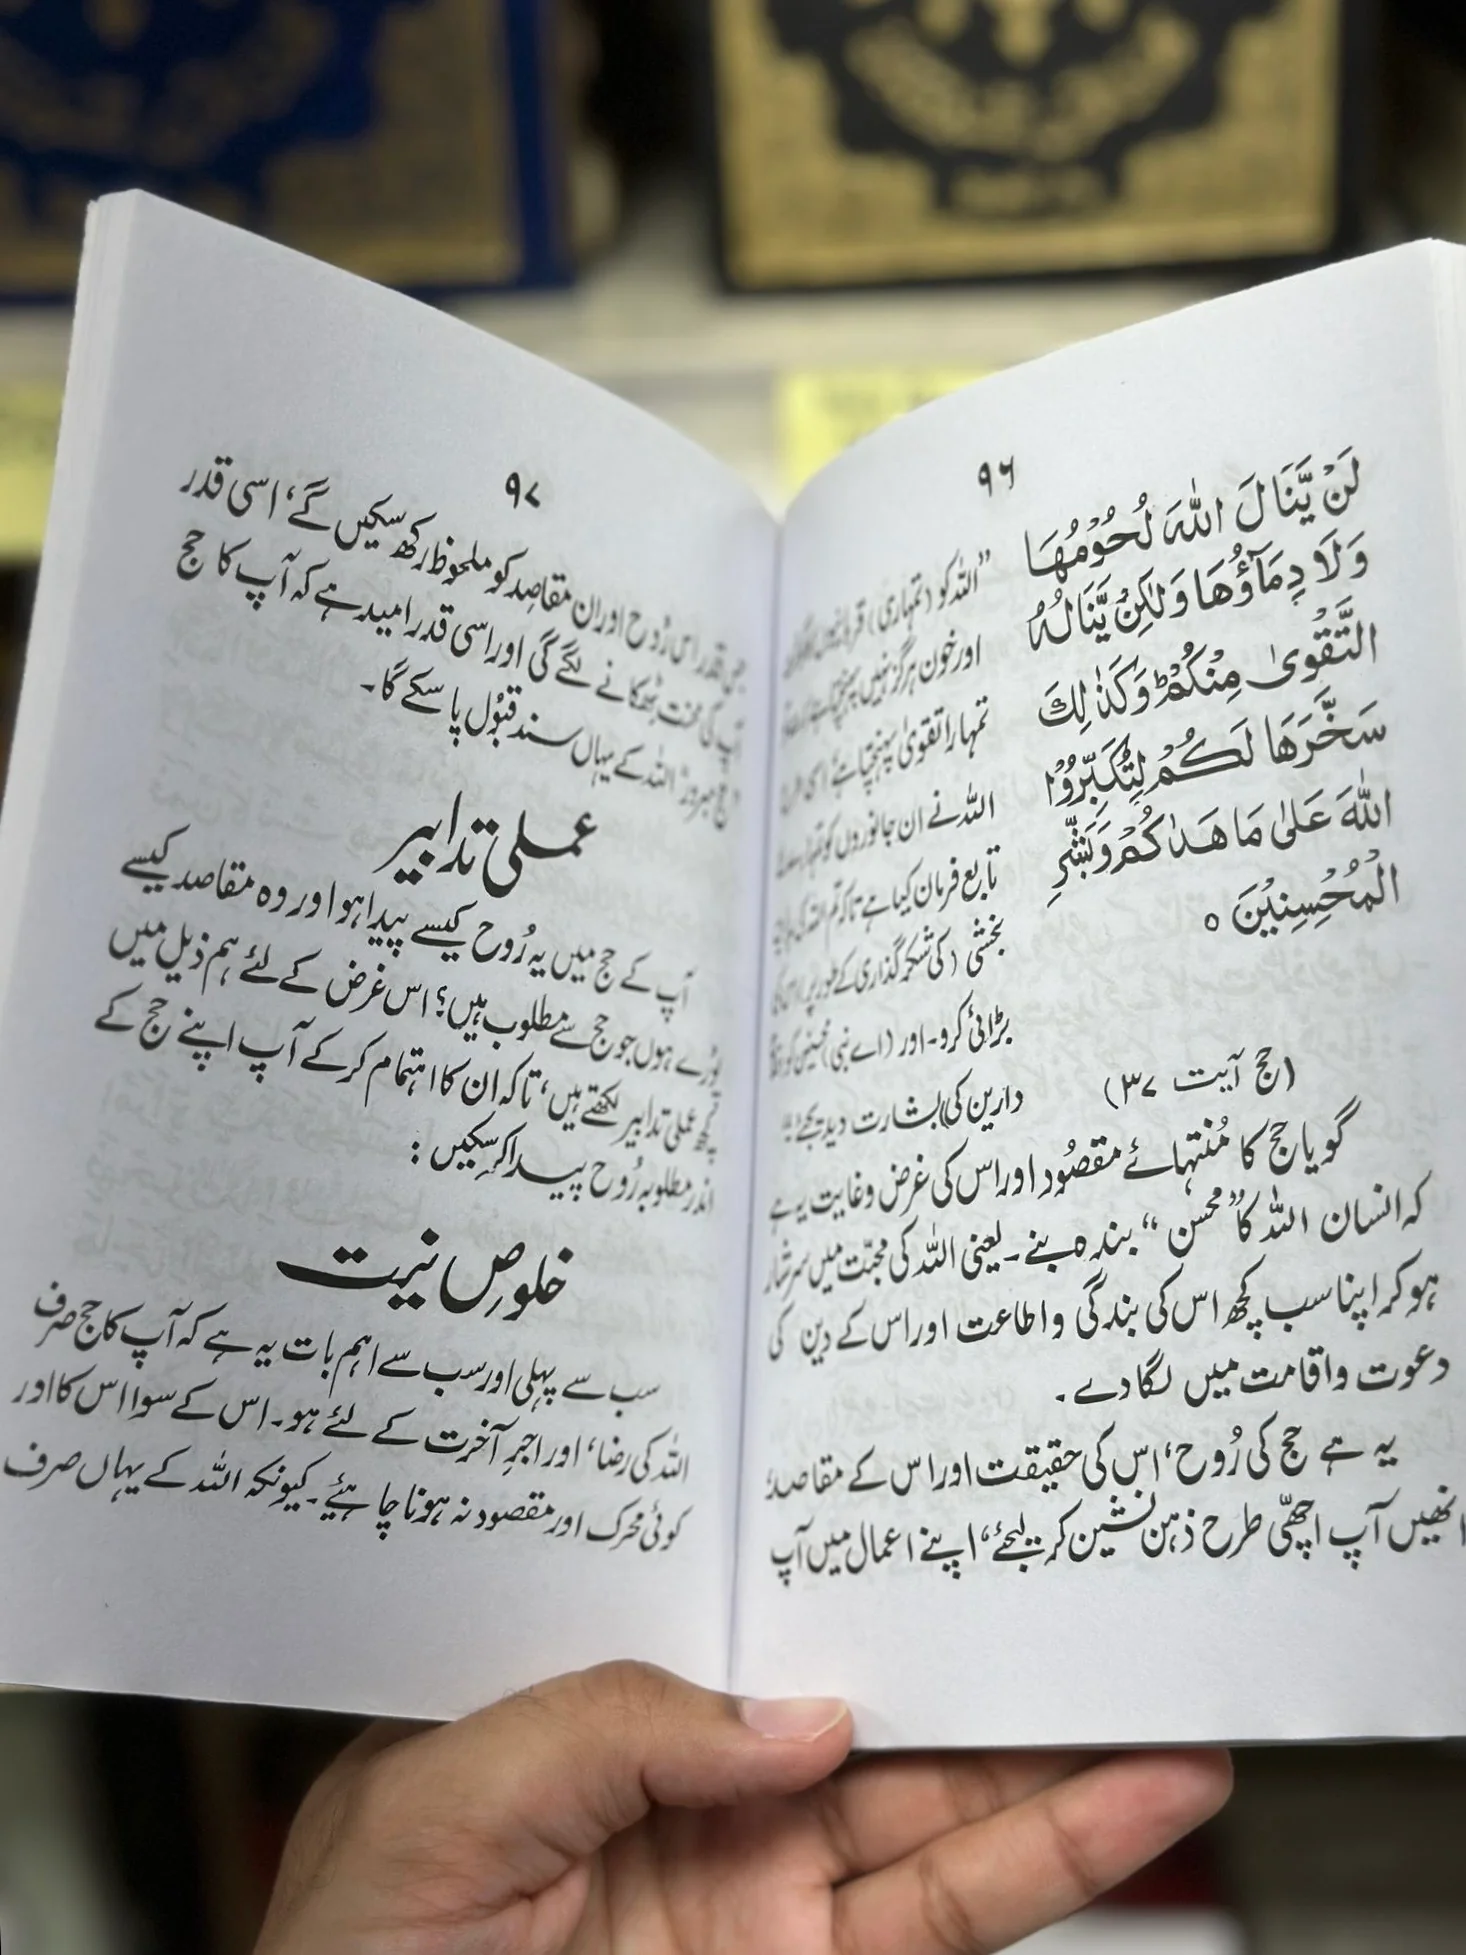 ۹۶
لَنْ يَّنَالَ اللّٰهَ لُحُوْمُهَا
وَلَا دِمَآؤُهَا وَلٰكِنْ يَّنَالُهُ
التَّقْوٰى مِنْكُمْ ؕ وَكَذٰلِكَ
سَخَّرَهَا لَكُمْ لِتُكَبِّرُوا
اللّٰهَ عَلٰى مَا هَدٰىكُمْ وَبَشِّرِ
الْمُحْسِنِيْنَ ○
(حج آیت ۳۷)
”اللہ کو (تمہاری)
اور خون ہرگز نہیں
تمہارا تقویٰ پہنچتا ہے
اللہ نے ان جانوروں کو
تابع فرمان کیا ہے تاکہ تم اللہ کی
بخشی (کی شکر گذاری کے طور پر)
بڑائی کرو۔ اور (اے نبی)
دارین کی) بشارت دیدیجئے!“
گویا حج کا مُنتہائے مقصُود اور اس کی غرض وغایت یہ ہے
کہ انسان اللہ کا ”محسن“ بندہ بنے۔ یعنی اللہ کی محبّت میں سرشار
ہو کر اپنا سب کچھ اس کی بندگی واطاعت اور اس کے دین کی
دعوت واقامت میں لگا دے۔
یہ ہے حج کی رُوح، اس کی حقیقت اور اس کے مقاصد،
انھیں آپ اچھّی طرح ذہن نشین کر لیجئے، اپنے اعمال میں آپ
۹۷
جس قدر اس رُوح اور ان مقاصِد کو ملحوظ رکھ سکیں گے، اسی قدر
آپ کی محنت ٹھکانے لگے گی اور اسی قدر امید ہے کہ آپ کا حج
حج مبرور، اللہ کے یہاں سند قبُول پا سکے گا۔
عملی تدابیر
آپ کے حج میں یہ رُوح کیسے پیدا ہو اور وہ مقاصد کیسے
پُورے ہوں جو حج سے مطلوب ہیں؟ اس غرض کے لئے ہم ذیل میں
کچھ عملی تدابیر لکھتے ہیں، تاکہ ان کا اہتمام کر کے آپ اپنے حج کے
اندر مطلوبہ رُوح پیدا کر سکیں :
خلوصِ نیت
سب سے پہلی اور سب سے اہم بات یہ ہے کہ آپ کا حج صرف
اللہ کی رضا، اور اجرِ آخرت کے لئے ہو۔ اس کے سوا اس کا اور
کوئی محرک اور مقصود نہ ہونا چاہئیے۔ کیونکہ اللہ کے یہاں صرف